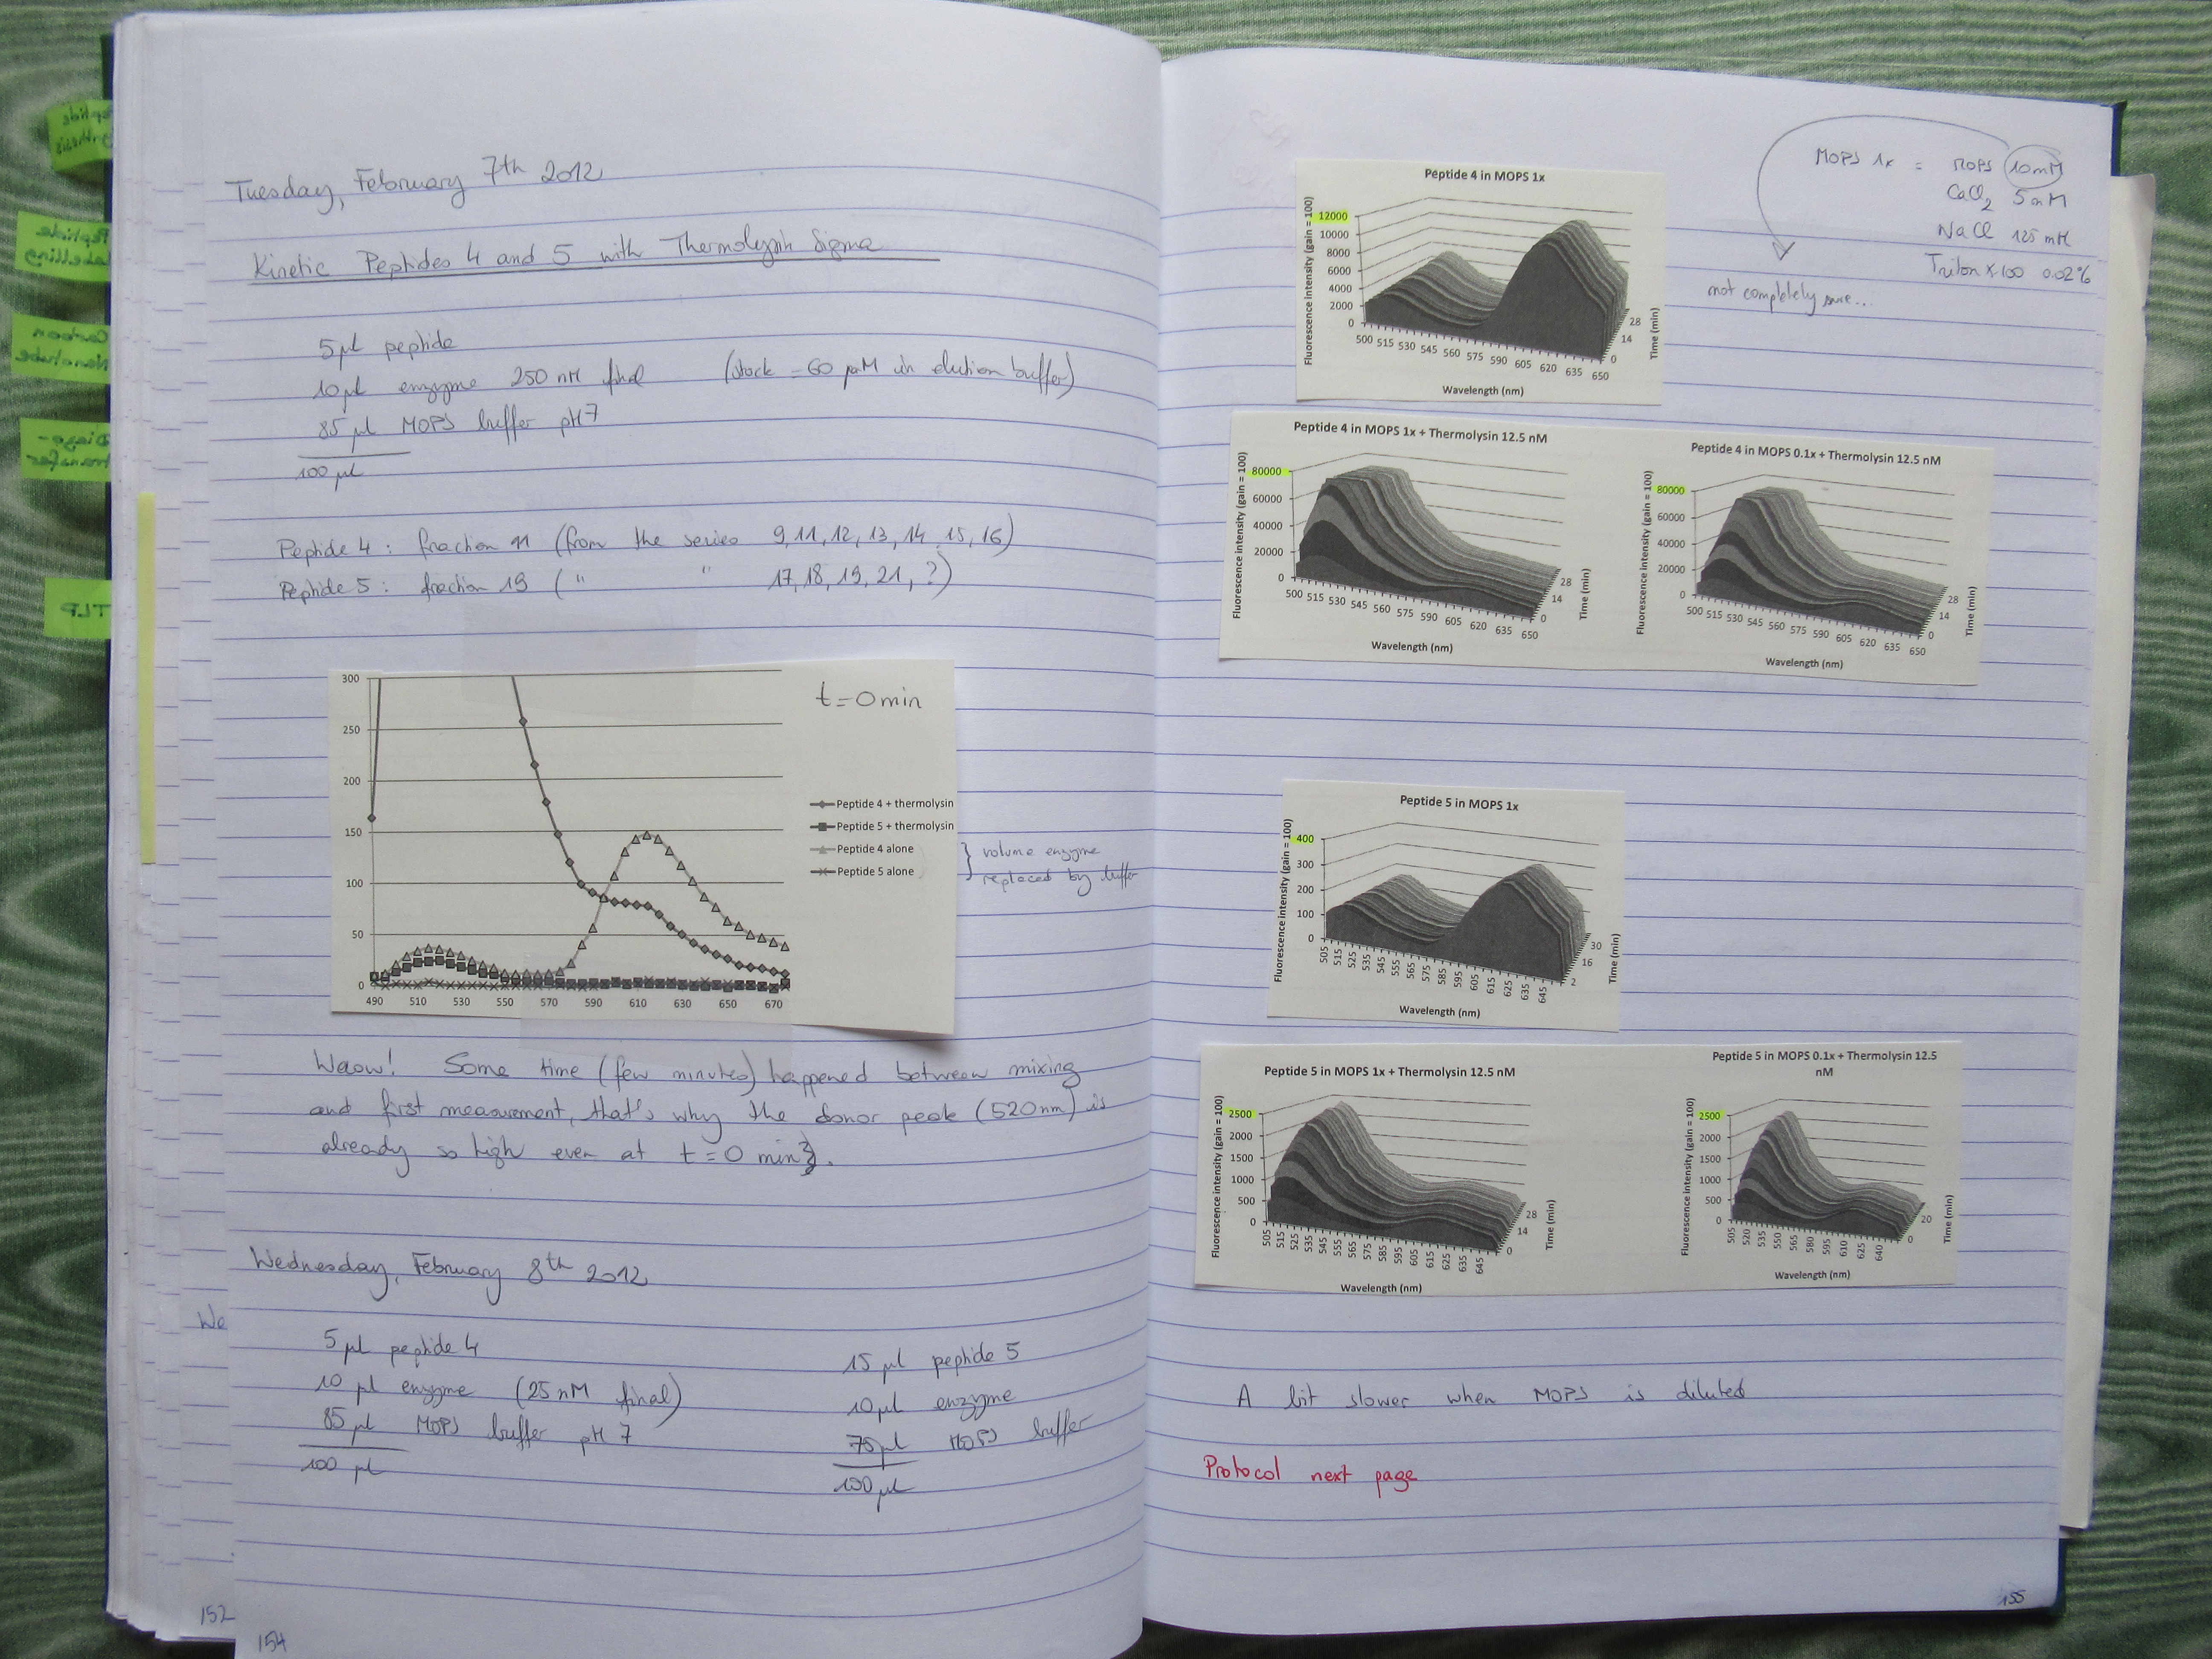 Tuesday, February 7th 2012
Kinetic Peptides 4 and 5 with Thermolysin Sigma
5 µl peptide
10 µl enzyme 250 nM final (stock = 60 µM in elution buffer)
85 µl MOPS buffer pH 7
100 µl
Peptide 4 : fraction 11 (from the series 9, 11, 12, 13, 14, 15, 16)
Peptide 5 : fraction 19 ( " " 17, 18, 19, 21, ?)
t = 0 min
300
250
200
150
100
50
0
490 510 530 550 570 590 610 630 650 670
Peptide 4 + thermolysin
Peptide 5 + thermolysin
Peptide 4 alone
Peptide 5 alone
} volume enzyme
replaced by buffer
Waow! Some time (few minutes) happened between mixing
and first measurement, that's why the donor peak (520 nm) is
already so high even at t = 0 min.
Wednesday, February 8th 2012
5 µl peptide 4
10 µl enzyme (25 nM final)
85 µl MOPS buffer pH 7
100 µl
15 µl peptide 5
10 µl enzyme
75 µl MOPS buffer
100 µl
We
152
154
Peptide
Synthesis
Peptide
Labelling
Carbon
Nanotube
Diazo-
transfer
TLP
MOPS 1x = MOPS 10 mM
CaCl2 5 mM
NaCl 125 mM
Triton X-100 0.02%
not completely sure...
Peptide 4 in MOPS 1x
Fluorescence intensity (gain = 100)
12000
10000
8000
6000
4000
2000
0
500 515 530 545 560 575 590 605 620 635 650
Wavelength (nm)
0 14 28
Time (min)
Peptide 4 in MOPS 1x + Thermolysin 12.5 nM
Fluorescence intensity (gain = 100)
80000
60000
40000
20000
0
500 515 530 545 560 575 590 605 620 635 650
Wavelength (nm)
0 14 28
Time (min)
Peptide 4 in MOPS 0.1x + Thermolysin 12.5 nM
Fluorescence intensity (gain = 100)
80000
60000
40000
20000
0
500 515 530 545 560 575 590 605 620 635 650
Wavelength (nm)
0 14 28
Time (min)
Peptide 5 in MOPS 1x
Fluorescence intensity (gain = 100)
400
300
200
100
0
505 515 525 535 545 555 565 575 585 595 605 615 625 635 645
Wavelength (nm)
2 16 30
Time (min)
Peptide 5 in MOPS 1x + Thermolysin 12.5 nM
Fluorescence intensity (gain = 100)
2500
2000
1500
1000
500
0
505 515 525 535 545 555 565 575 585 595 605 615 625 635 645
Wavelength (nm)
0 14 28
Time (min)
Peptide 5 in MOPS 0.1x + Thermolysin 12.5
nM
Fluorescence intensity (gain = 100)
2500
2000
1500
1000
500
0
505 520 535 550 565 580 595 610 625 640
Wavelength (nm)
0 20
Time (min)
A bit slower when MOPS is diluted
Protocol next page
155